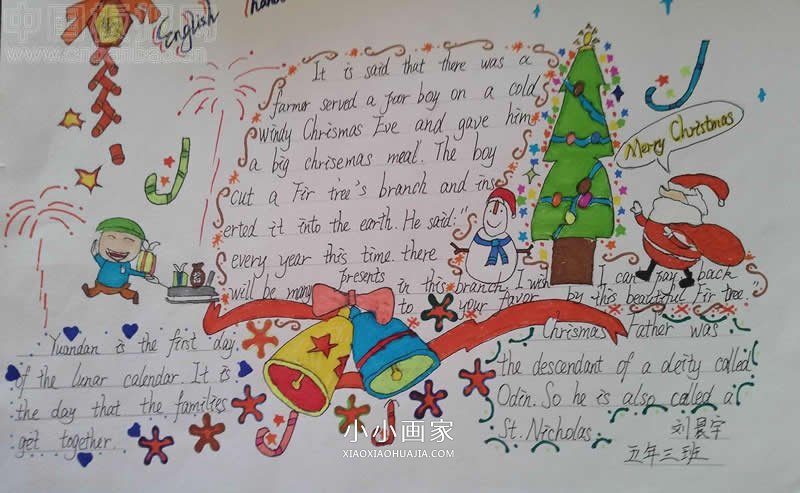 English
It is said that there was a
farmer served a poor boy on a cold
windy Chrismas Eve and gave him
a big chrisemas meal. The boy
cut a Fir tree's branch and ins
erted it into the earth. He said:"
every year this time. there
will be many presents in this branch. I wish I can pay back
to your favor by this beautiful Fir tree.
Merry Christmas
Yuandan is the first day
of the lunar calendar. It is
the day that the families
get together.
Chrismas Father was
the descendant of a deity called
Odin. So he is also called a
St. Nicholas.
五年三班
小小画家
XIAOXIAOHUAJIA.COM